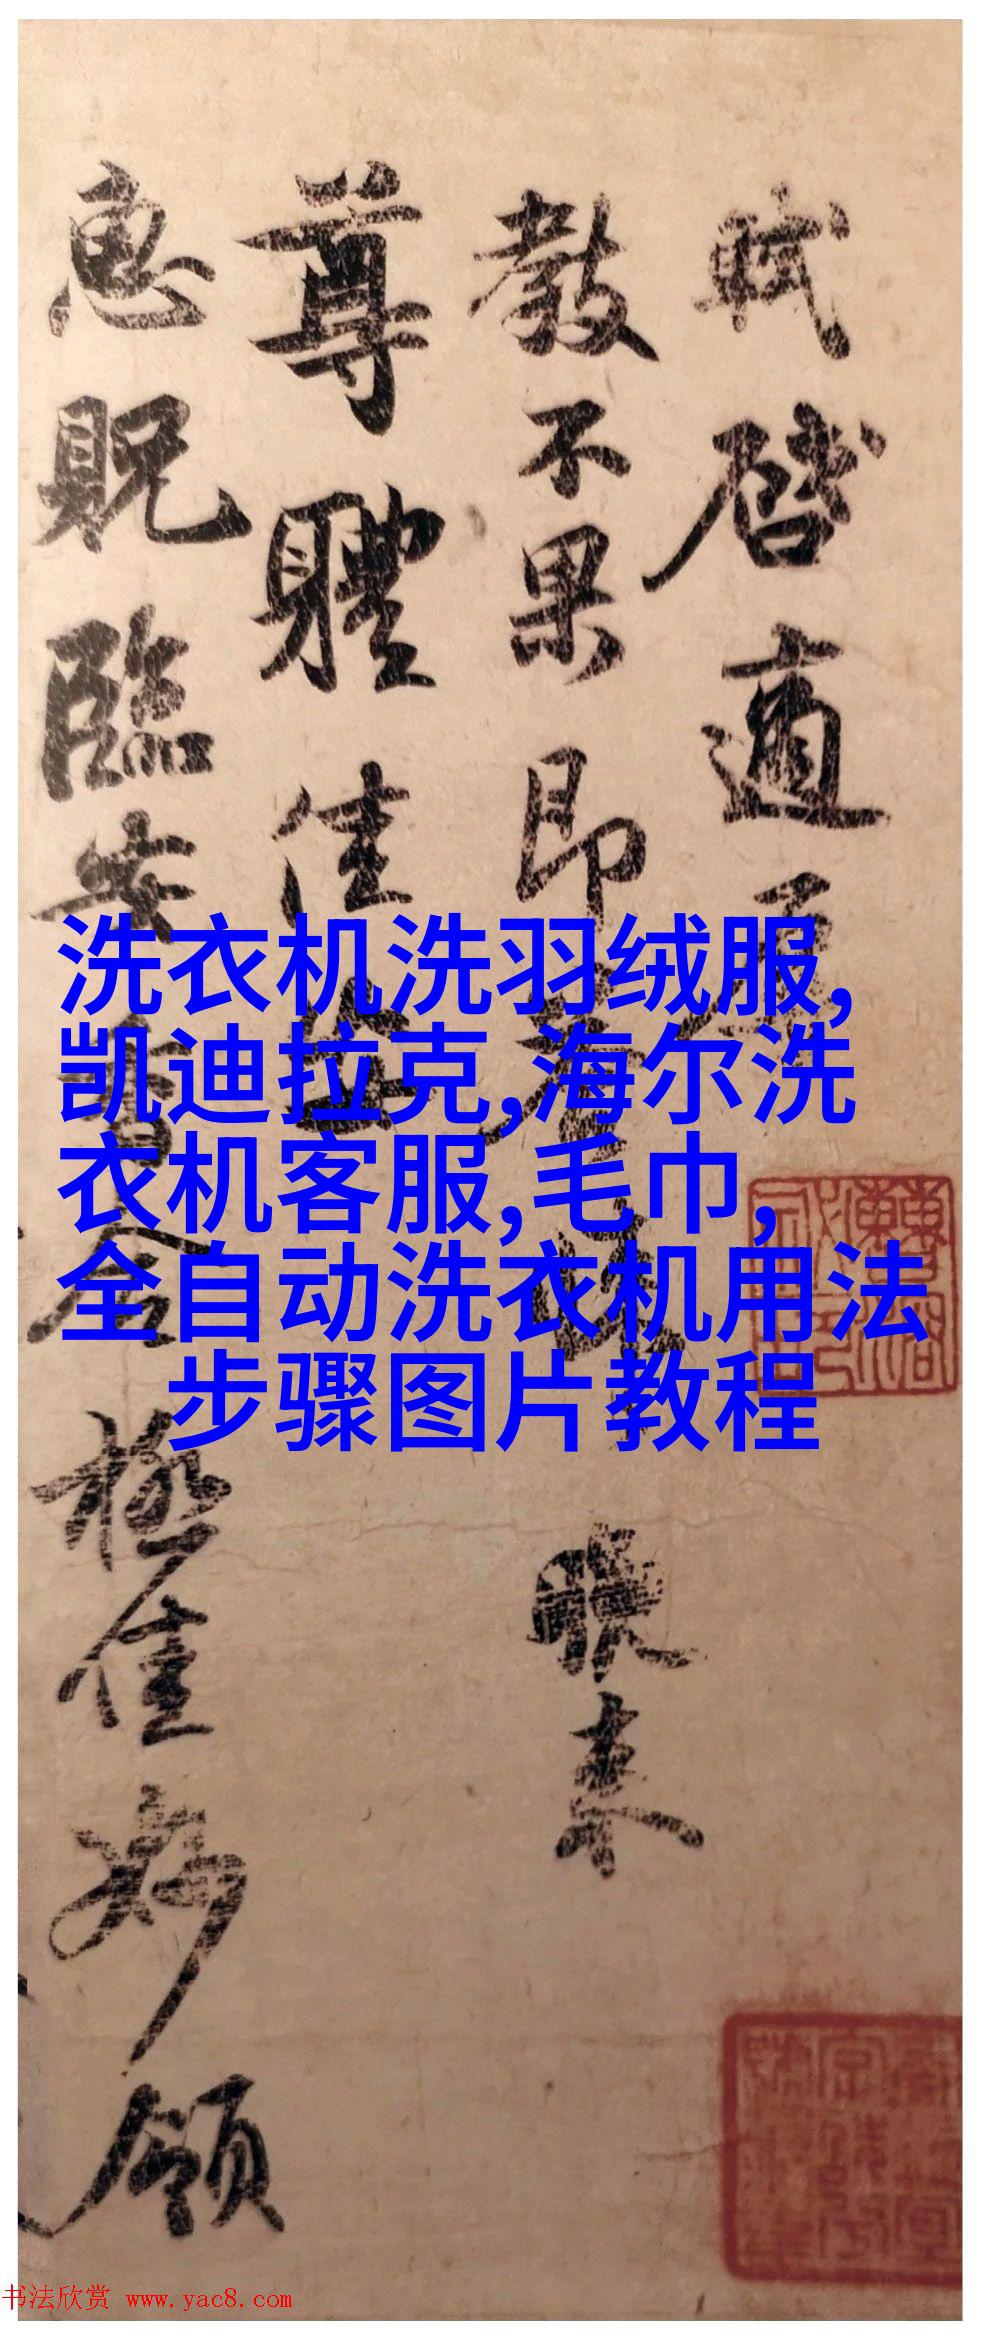 軾啓適
教不果即答 晚來
尊體佳
惠貺臨安香合極佳妙領
洗衣机洗羽绒服,
凯迪拉克,海尔洗
衣机客服,毛巾,
全自动洗衣机用法
步骤图片教程
书法欣赏 www.yac8.com